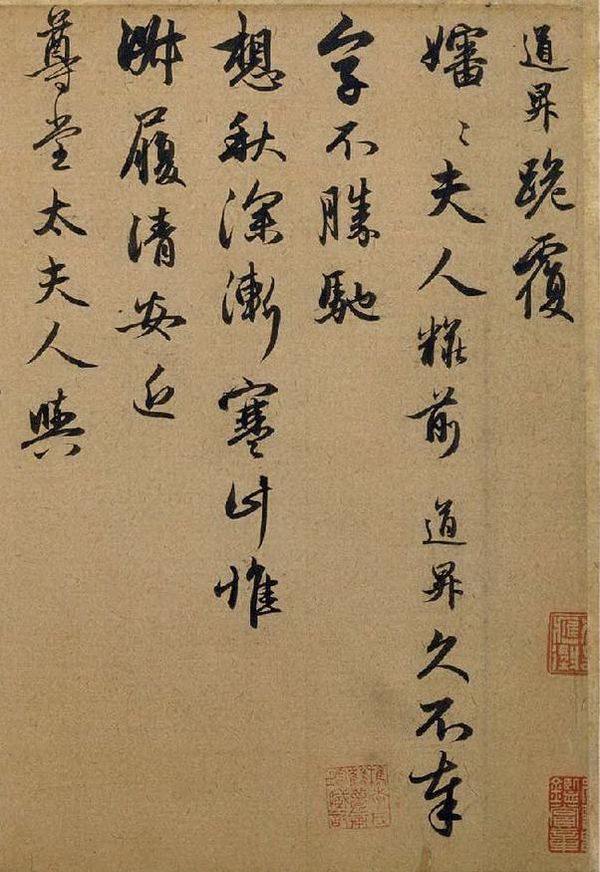 道昇跪覆
嬸〻夫人糚前 道昇久不奉
字不勝馳
想秋深漸寒計惟
淑履清安近
尊堂太夫人與